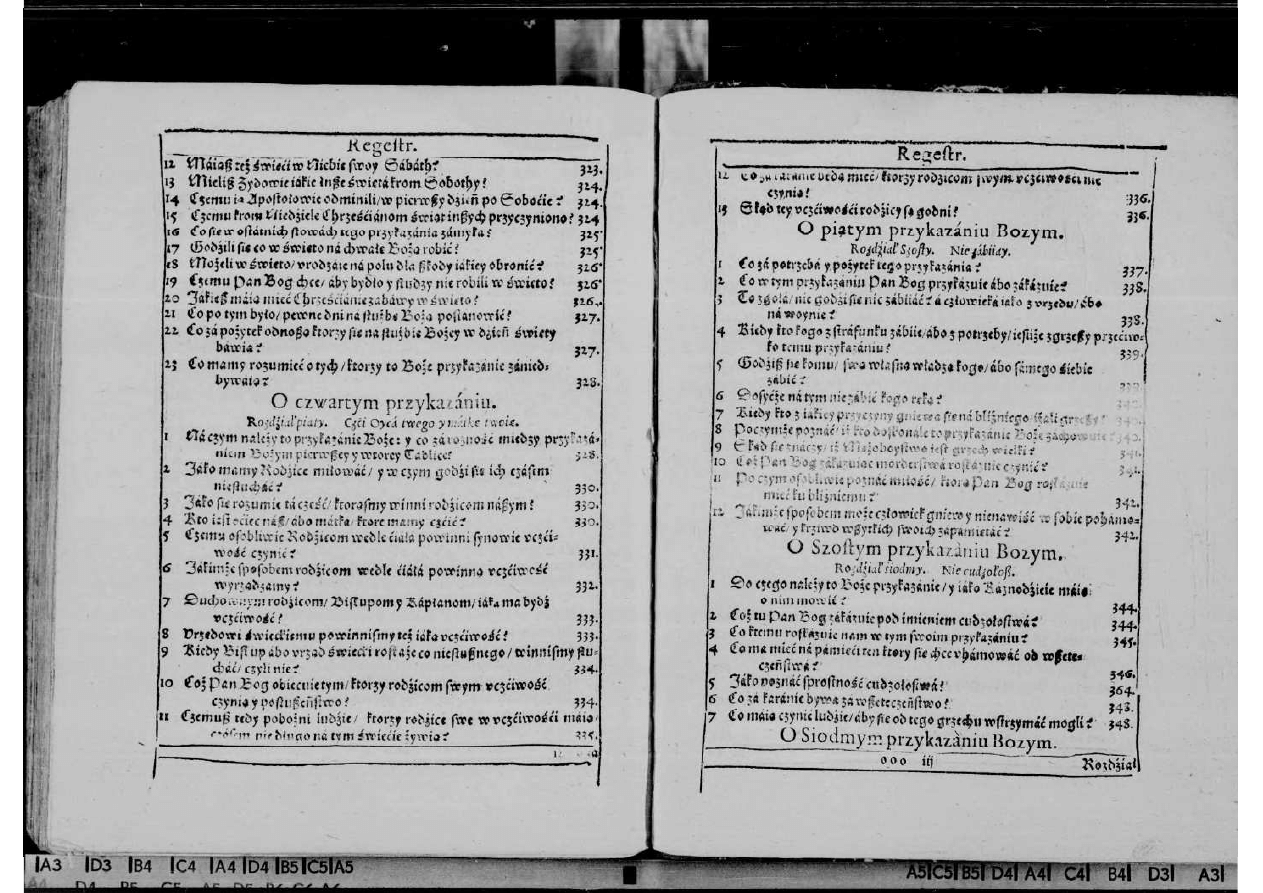 Regestr.
12 Máiąß też święći w Niebie swoy Sábáth? 323.
13 Mieliß Zydowie iákie inße święta krom Sobothy? 324.
14 Czemu ią Apostołowie odminili/ w pierwßy dźień po Soboćie? 324.
15 Czemu krom Niedźiele Chrześćiánom świąt inßych przyczyniono? 324
16 Co sie w ostátnich słowách tego przykazánia zámyka? 325
17 Godźili sie co w święto ná chwałę Bożą robić? 325
18 Możeli w święto/ vrodzáie ná polu dla ßkody iákiey obronić? 326
19 Czemu Pan Bog chce/ áby bydło y słudzy nie robili w święto? 326
20 Jákieß máią mieć Chrześćiánie zabáwy w święto? 326.
21 Co po tym było/ pewne dni ná służbę Bożą postánowić? 327.
22 Co zá pożytek odnoßą ktorzy sie ná służbie Bożey w dźień święty
báwią? 327.
23 Co mamy rozumieć o tych/ ktorzy to Boże przykazánie zánied-
bywáią? 328.
O czwartym przykazániu.
Rozdźiał piąty. Czći Oycá twego y mátkę twoię.
1 Ná czym należy to przykazánie Boże: y co zá rożność miedzy przykazá-
niem Bożym pierwßey y wtorey Tablice? 328.
2 Jáko mamy Rodźice miłowáć/ y w czym godźi sie ich czásem
niesłucháć? 330.
3 Jáko sie rozumie tá cześć/ ktorąsmy winni rodźicom náßym? 330.
4 Kto iest oćiec náß/ ábo mátká/ ktore mamy czćić? 330.
5 Czemu osobliwie Rodźicom wedle ćiáłá powinni synowie vczći-
wość czynić? 331.
6 Jákimże sposobem rodźicom wedle ćiáłá powinną vczćiwość
wyrządzamy? 332.
7 Duchownym rodźicom/ Biskupom y Kápłanom/ iáka ma bydź
vczćiwość? 333.
8 Vrzędowi świeckiemu powinnismy też iáką vczćiwość? 333.
9 Kiedy Biskup ábo vrząd świecki roskaże co niesłußnego/ winnismy słu-
cháć/ czyli nie? 334.
10 Coż Pan Bog obiecuie tym/ ktorzy rodźicom swym vczćiwość
czynią y posłußeństwo? 334.
11 Czemuß tedy pobożni ludźie/ ktorzy rodźice swe w vczćiwośći máią/
czásem nie długo ná tym świećie żywią? 335.
Regestr.
12 Co zá karánie będą mieć/ ktorzy rodźicom swym vczćiwośći nie
czynią? 336.
13 Skąd tey vczćiwośći rodźicy są godni? 336.
O piątym przykazániu Bozym.
Rozdźiał Szosty. Nie zábiiay.
1 Co zá potrzebá y pożytek tego przykazánia? 337.
2 Co w tym przykazániu Pan Bog przykázuie ábo zákázuie? 338.
3 To zgołá/ nie godźi sie nic zábiiáć? á człowieká iáko z vrzędu/ ábo
ná woynie? 338.
4 Kiedy kto kogo z tráfunku zábiie/ ábo z potrzeby/ iesliże zgrzeßy przećiw-
ko temu przykazániu? 339.
5 Godźiß sie komu/ swą własną władzą kogo/ ábo sámego śiebie
zábić? 339
6 Dosyćże ná tym nie zábić kogo ręką? 340.
7 Kiedy kto z iákiey przyczyny gniewa sie ná bliźniego/ iżali grzeßy? 340.
8 Poczymże poznáć/ iż kto doskonále to przykazánie Boże záchowuie? 340.
9 Skąd sie znáczy/ iż Mężoboystwo iest grzech wielki? 341
10 Coż Pan Bog zákázuiąc morderstwá roskázuie czynić? 341.
11 Po czym osobliwie poznáć miłość/ ktorą Pan Bog roskázuie
mieć ku bliźniemu? 342.
12 Jákimże sposobem może człowiek gniew y nienawiść w sobie pohámo-
wáć/ y krzywd wßytkich swoich zápámiętáć? 342.
O Szostym przykazániu Bozym.
Rozdźiał siodmy. Nie cudzołoż.
1 Do czego należy to Boże przykazánie/ y iáko Káznodźieie máią
o nim mowić? 344.
2 Coż tu Pan Bog zákázuie pod imieniem cudzołostwá? 344.
3 Co k temu roskázuie nam w tym swoim przykazániu? 345.
4 Co ma mieć ná pámięći ten ktory sie chce vhámowáć od wßete-
czeństwá? 346.
5 Jáko poznáć sprostność cudzołostwá? 364.
6 Co zá karánie bywa zá wßeteczeństwo? 348.
7 Co máią czynić ludźie/ áby sie od tego grzechu wstrzymáć mogli? 348.
O Siodmym przykazániu Bozym.
ooo iij Rozdźiał
A3 D3 B4 C4 A4 D4 B5 C5 A5
A5 C5 B5 D4 A4 C4 B4 D3 A3